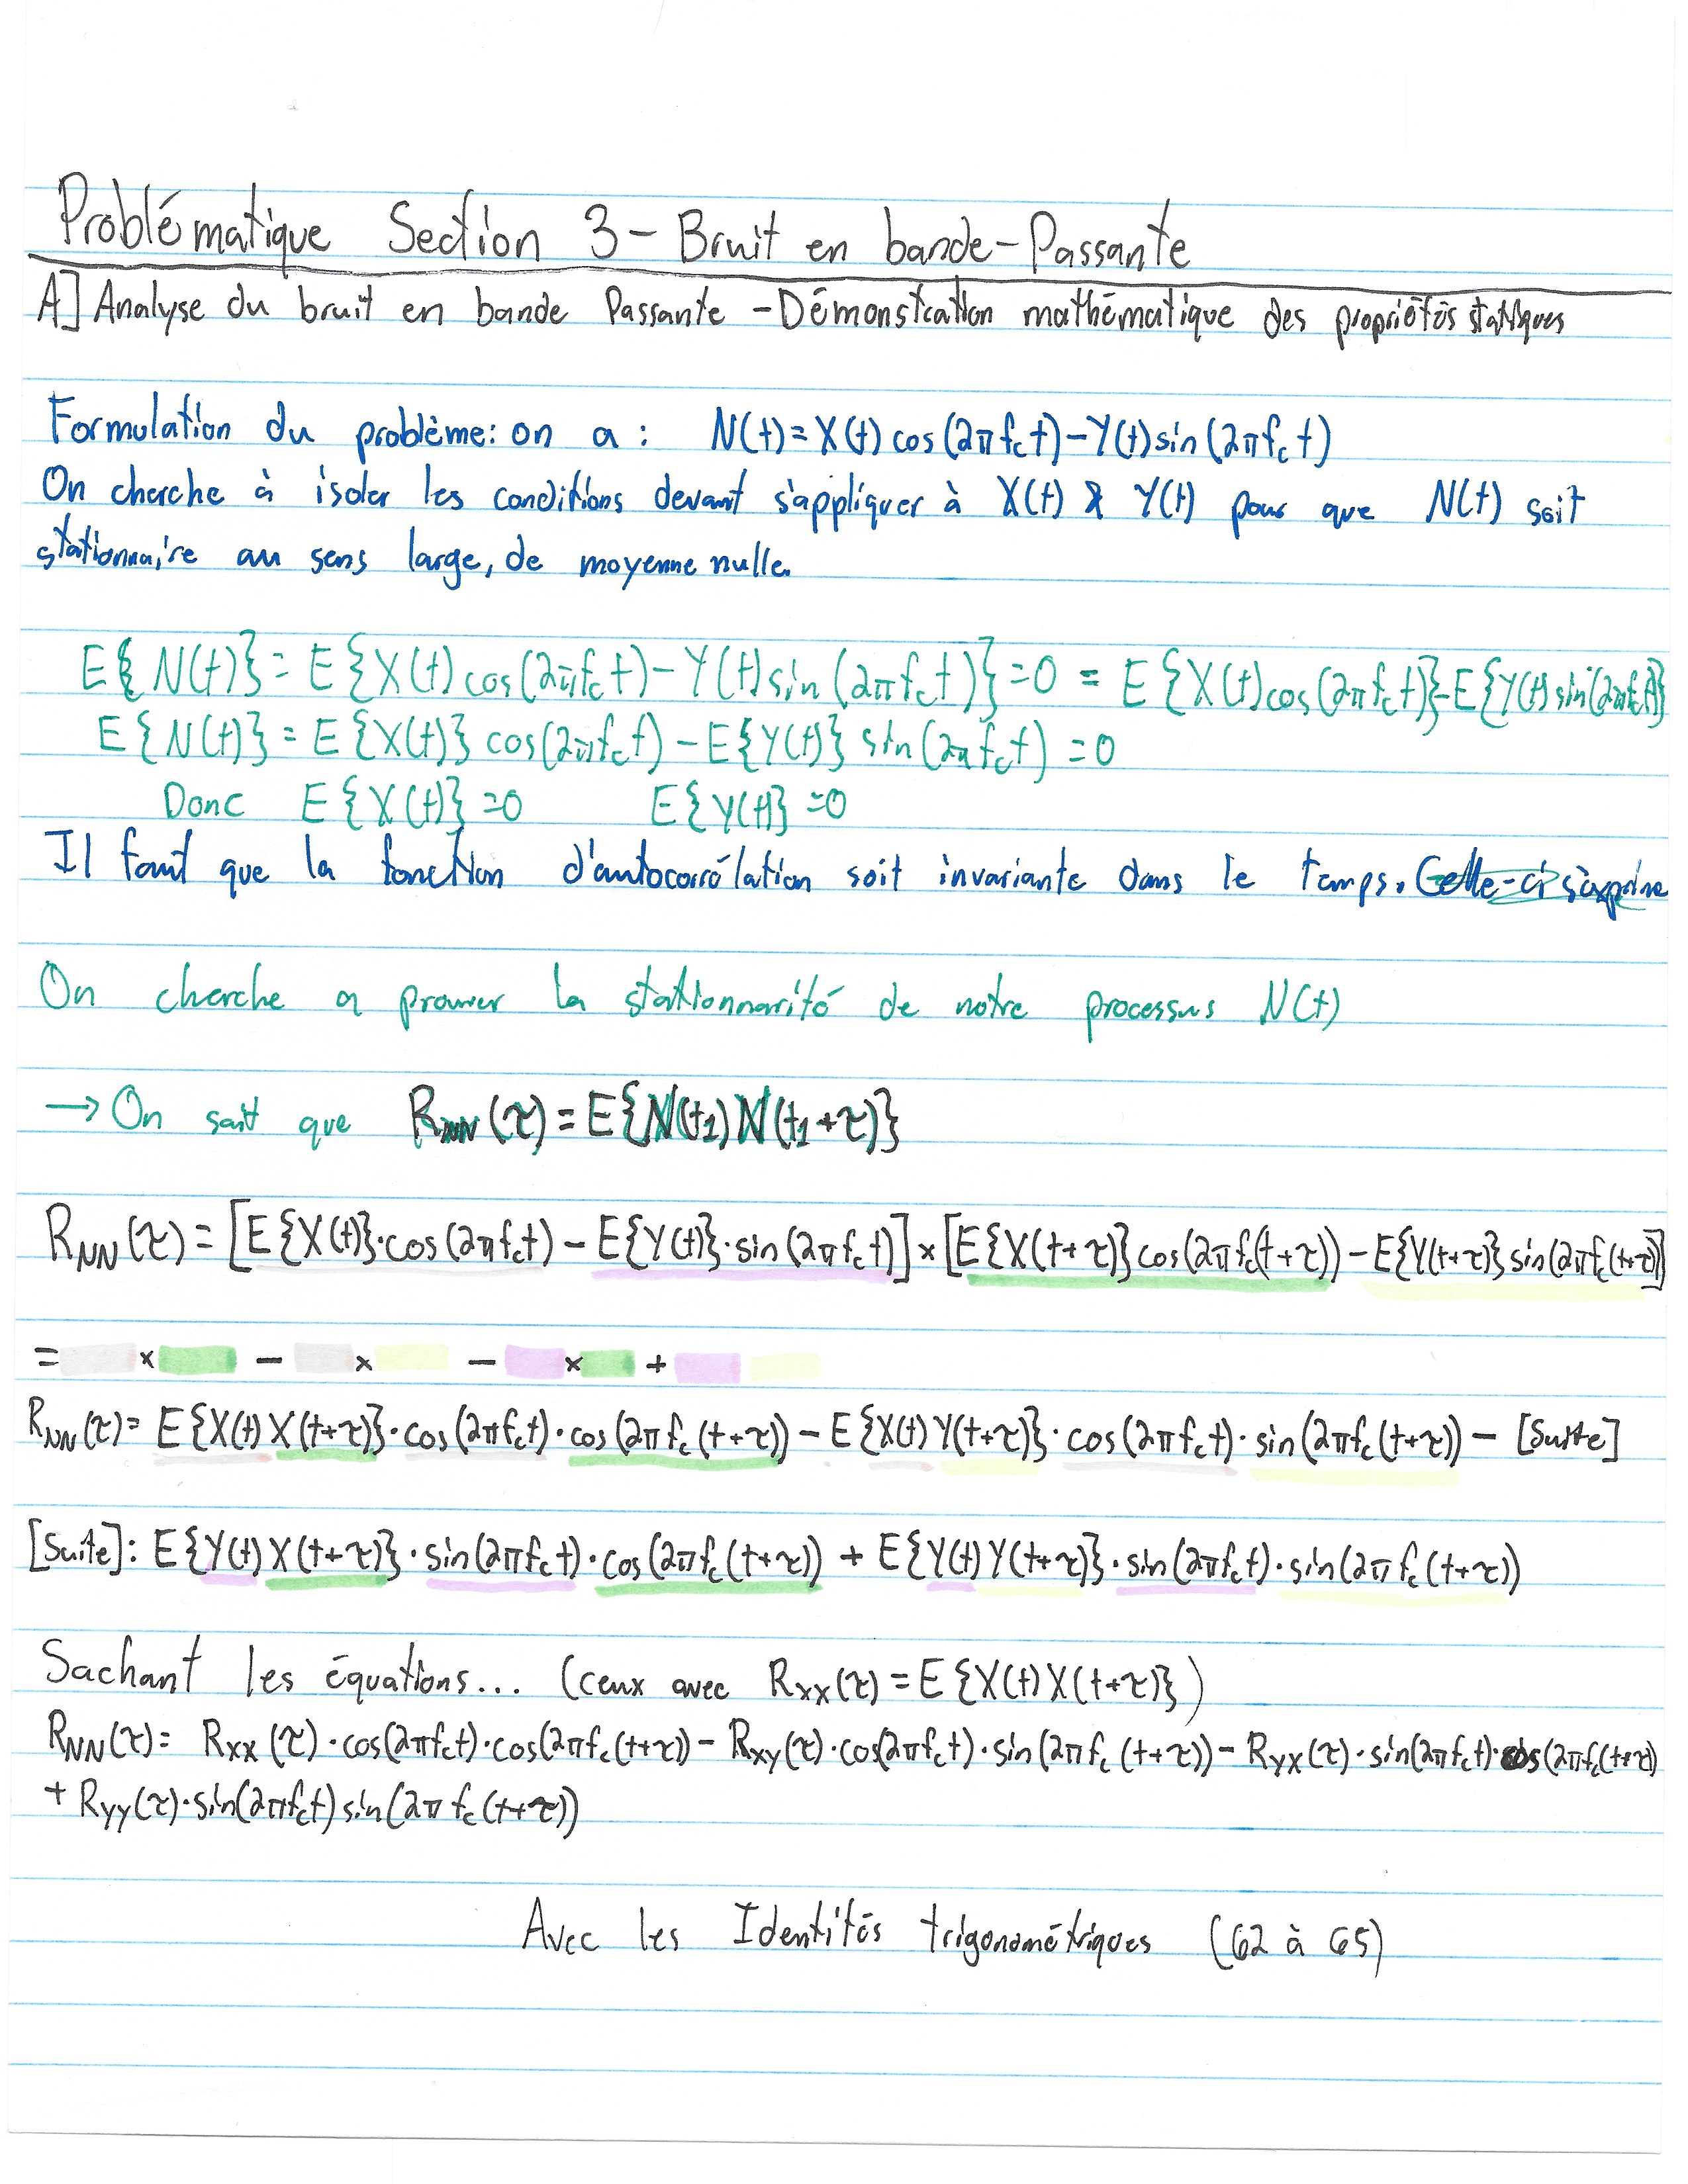 Problématique Section 3 - Bruit en bande-Passante
A] Analyse du bruit en bande Passante - Démonstration mathématique des propriétés statiques
Formulation du problème: on a : N(t)=X(t) cos(2πf_c t)-Y(t)sin(2πf_c t)
On cherche à isoler les conditions devant s'appliquer à X(t) & Y(t) pour que N(t) soit
stationnaire au sens large, de moyenne nulle.
E{N(t)}=E{X(t)cos(2πf_c t)-Y(t)sin(2πf_c t)}=0 = E{X(t)cos(2πf_c t)}-E{Y(t)sin(2πf_c t)}
E{N(t)}=E{X(t)}cos(2πf_c t)-E{Y(t)} sin(2πf_c t) =0
Donc E{X(t)}=0 E{Y(t)}=0
Il faut que la fonction d'autocorrélation soit invariante dans le temps. Celle-ci s'exprime
On cherche a prouver la stationnarité de notre processus N(t)
→ On sait que R_NN(τ)=E{N(t_1)N(t_1+τ)}
R_NN(τ)=[E{X(t)}·cos(2πf_c t)-E{Y(t)}·sin(2πf_c t)]×[E{X(t+τ)}cos(2πf_c(t+τ))-E{Y(t+τ)}sin(2πf_c(t+τ))]
= × - × - × +
R_NN(τ)= E{X(t)X(t+τ)}·cos(2πf_c t)·cos(2πf_c(t+τ))-E{X(t)Y(t+τ)}·cos(2πf_c t)·sin(2πf_c(t+τ))-[Suite]
[Suite]: E{Y(t)X(t+τ)}·sin(2πf_c t)·cos(2πf_c(t+τ)) + E{Y(t)Y(t+τ)}·sin(2πf_c t)·sin(2πf_c(t+τ))
Sachant les équations... (ceux avec R_XX(τ)=E{X(t)X(t+τ)})
R_NN(τ)= R_XX(τ)·cos(2πf_c t)·cos(2πf_c(t+τ))-R_XY(τ)·cos(2πf_c t)·sin(2πf_c(t+τ))-R_YX(τ)·sin(2πf_c t)·cos(2πf_c(t+τ))
+ R_YY(τ)·sin(2πf_c t)sin(2πf_c(t+τ))
Avec les Identités trigonométriques (62 à 65)